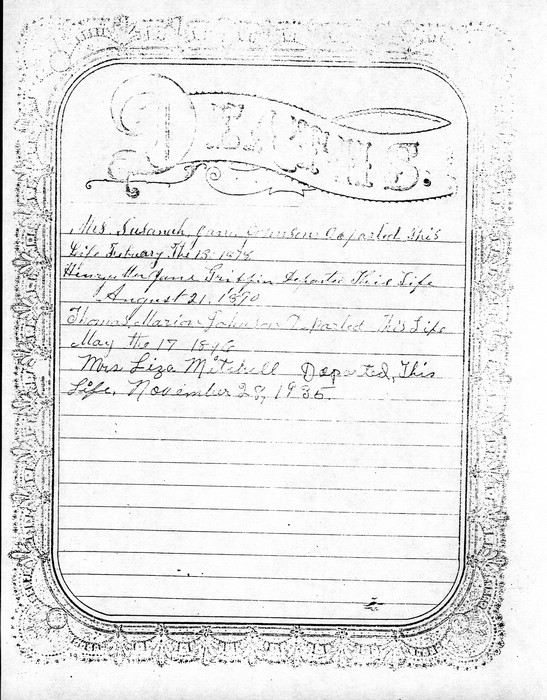 DEATHS.
Mrs. Susanah Jane Johnson Departed This
Life February The 13. 1878
Henry Morgane Griffin Departed This Life
August 21, 1890
Thomas Marion Johnson Departed This Life
May the 17
Mrs Liza Mitchell Departed, This
Life, November 28, 1936.